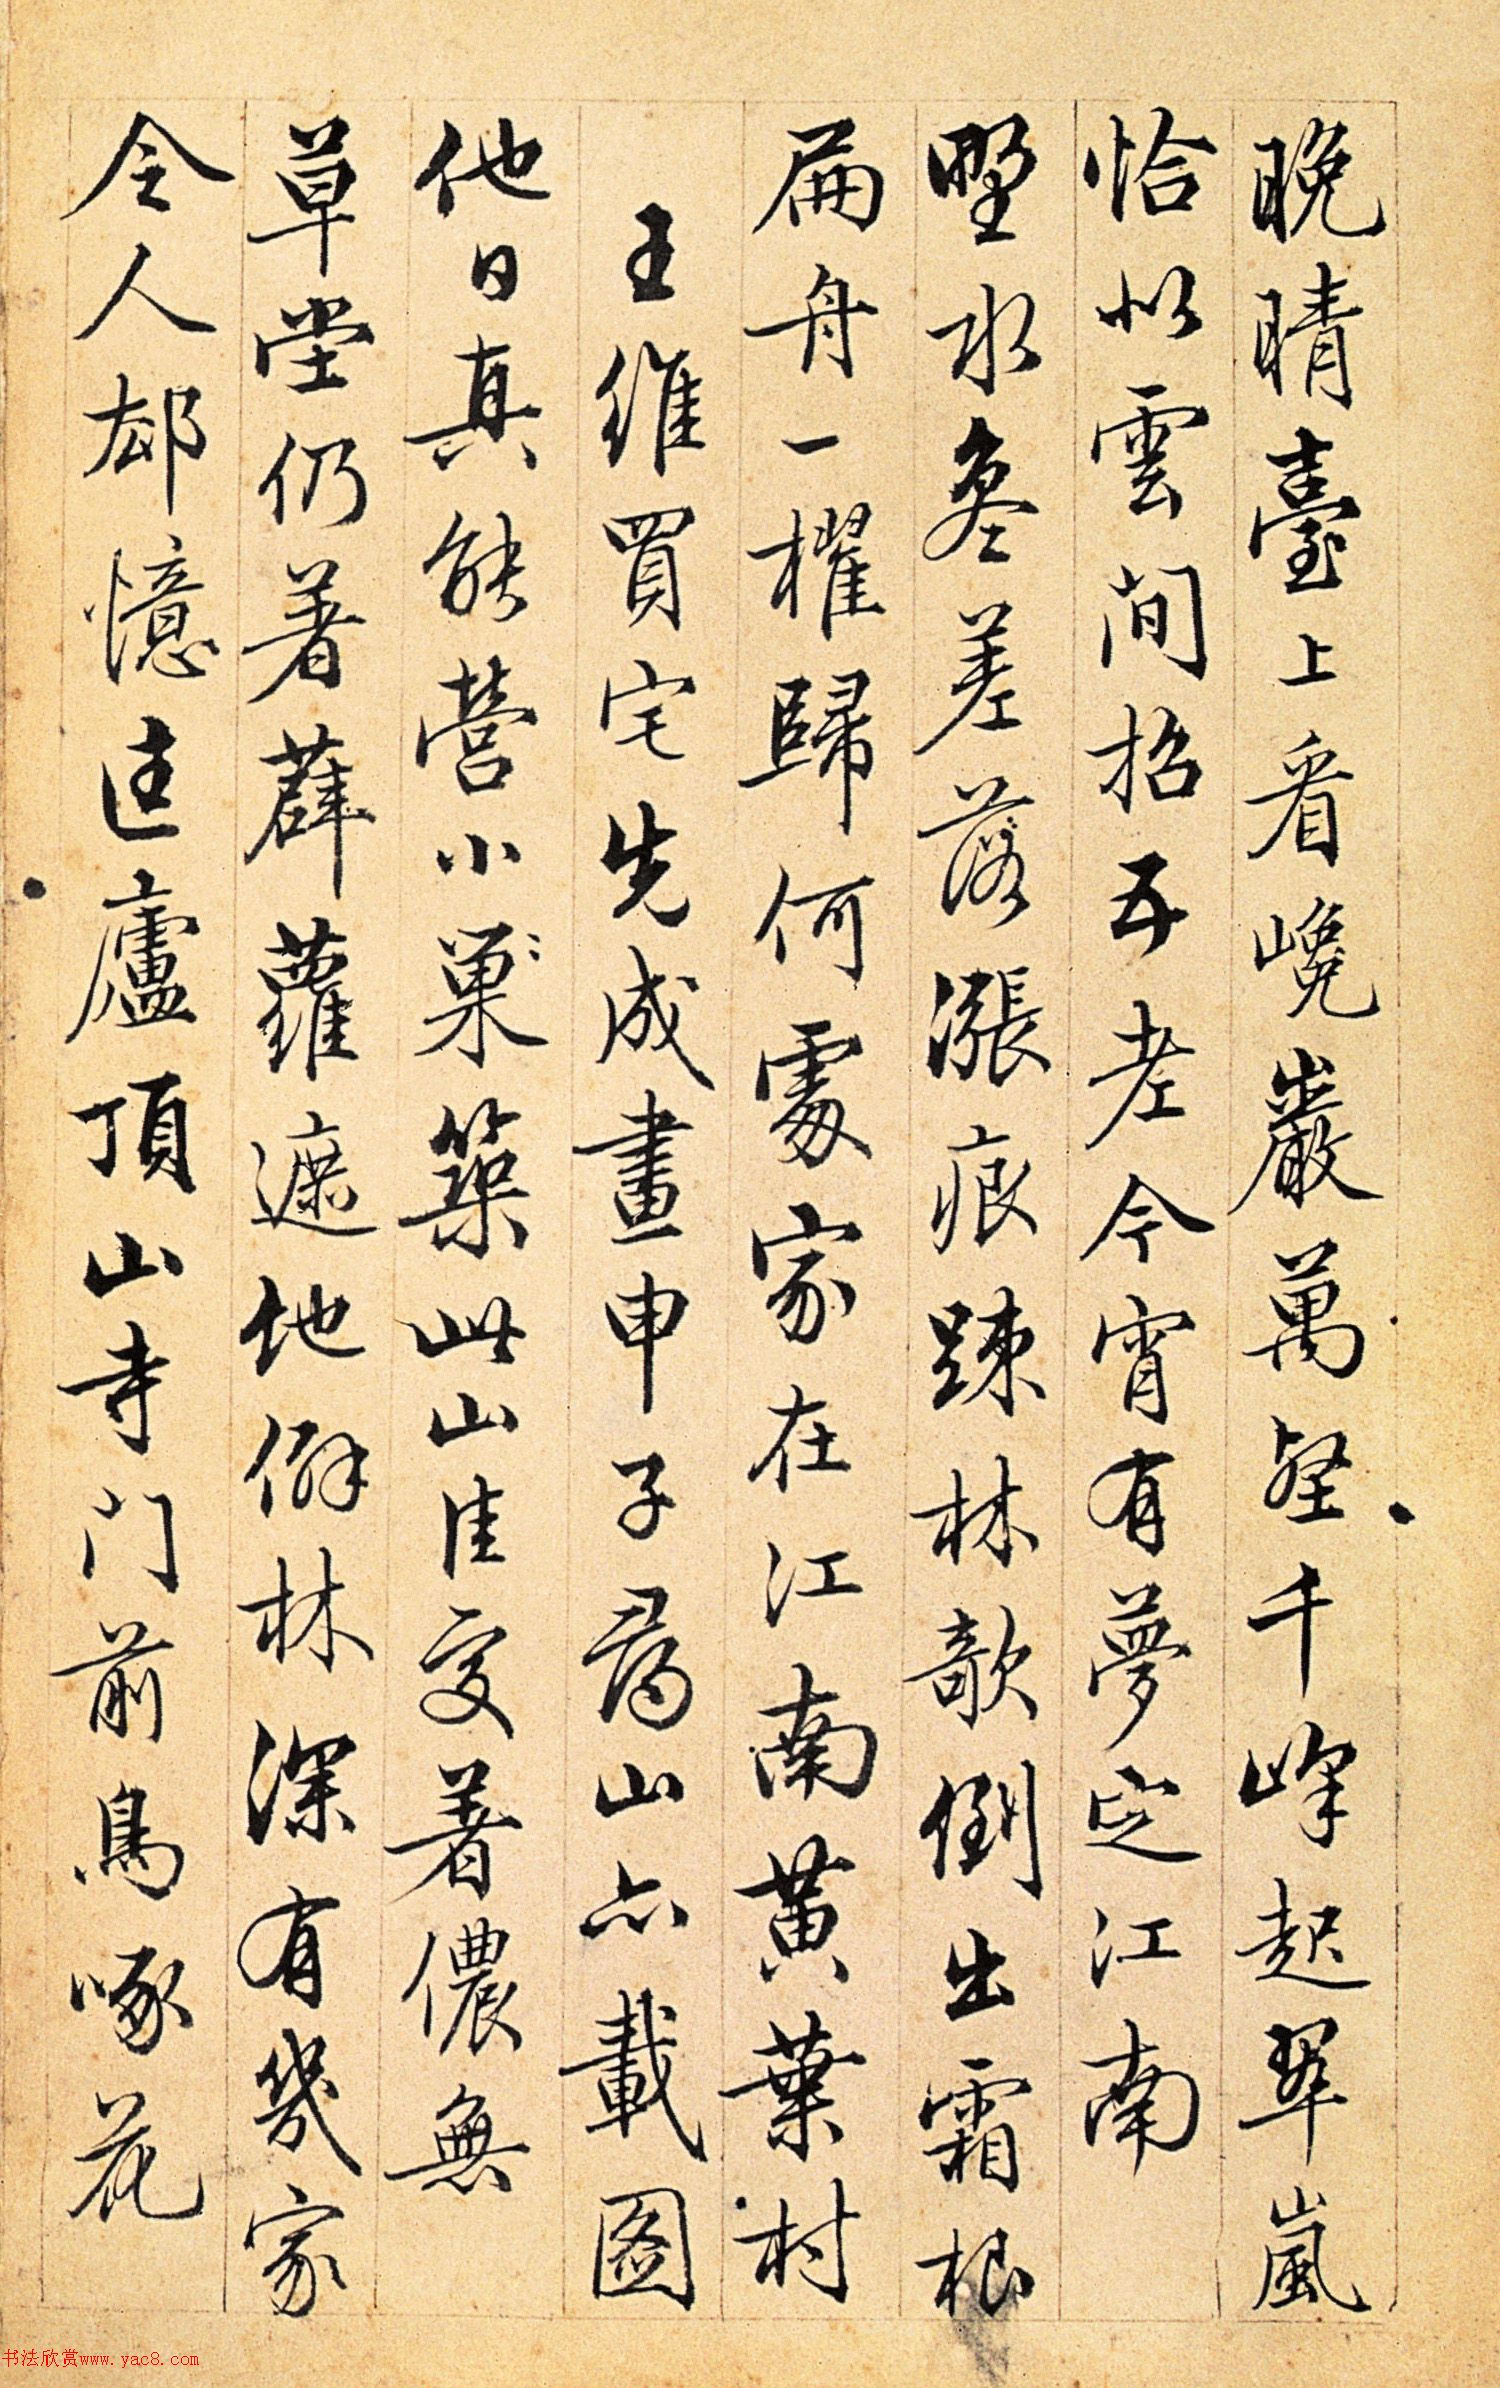 晚晴臺上看巉巖萬壑千峰起翠嵐
恰似雲間招五老今宵有夢定江南
野水參差落漲痕疎林欹倒出霜根
扁舟一櫂歸何處家在江南黃葉村
王維買宅先成畫申子為山亦載圖
他日真能營小巢築此山佳處著儂無
草堂仍著薜蘿遮地僻林深有幾家
令人却憶匡廬頂山寺門前鳥啄花
书法欣赏www.yac8.com